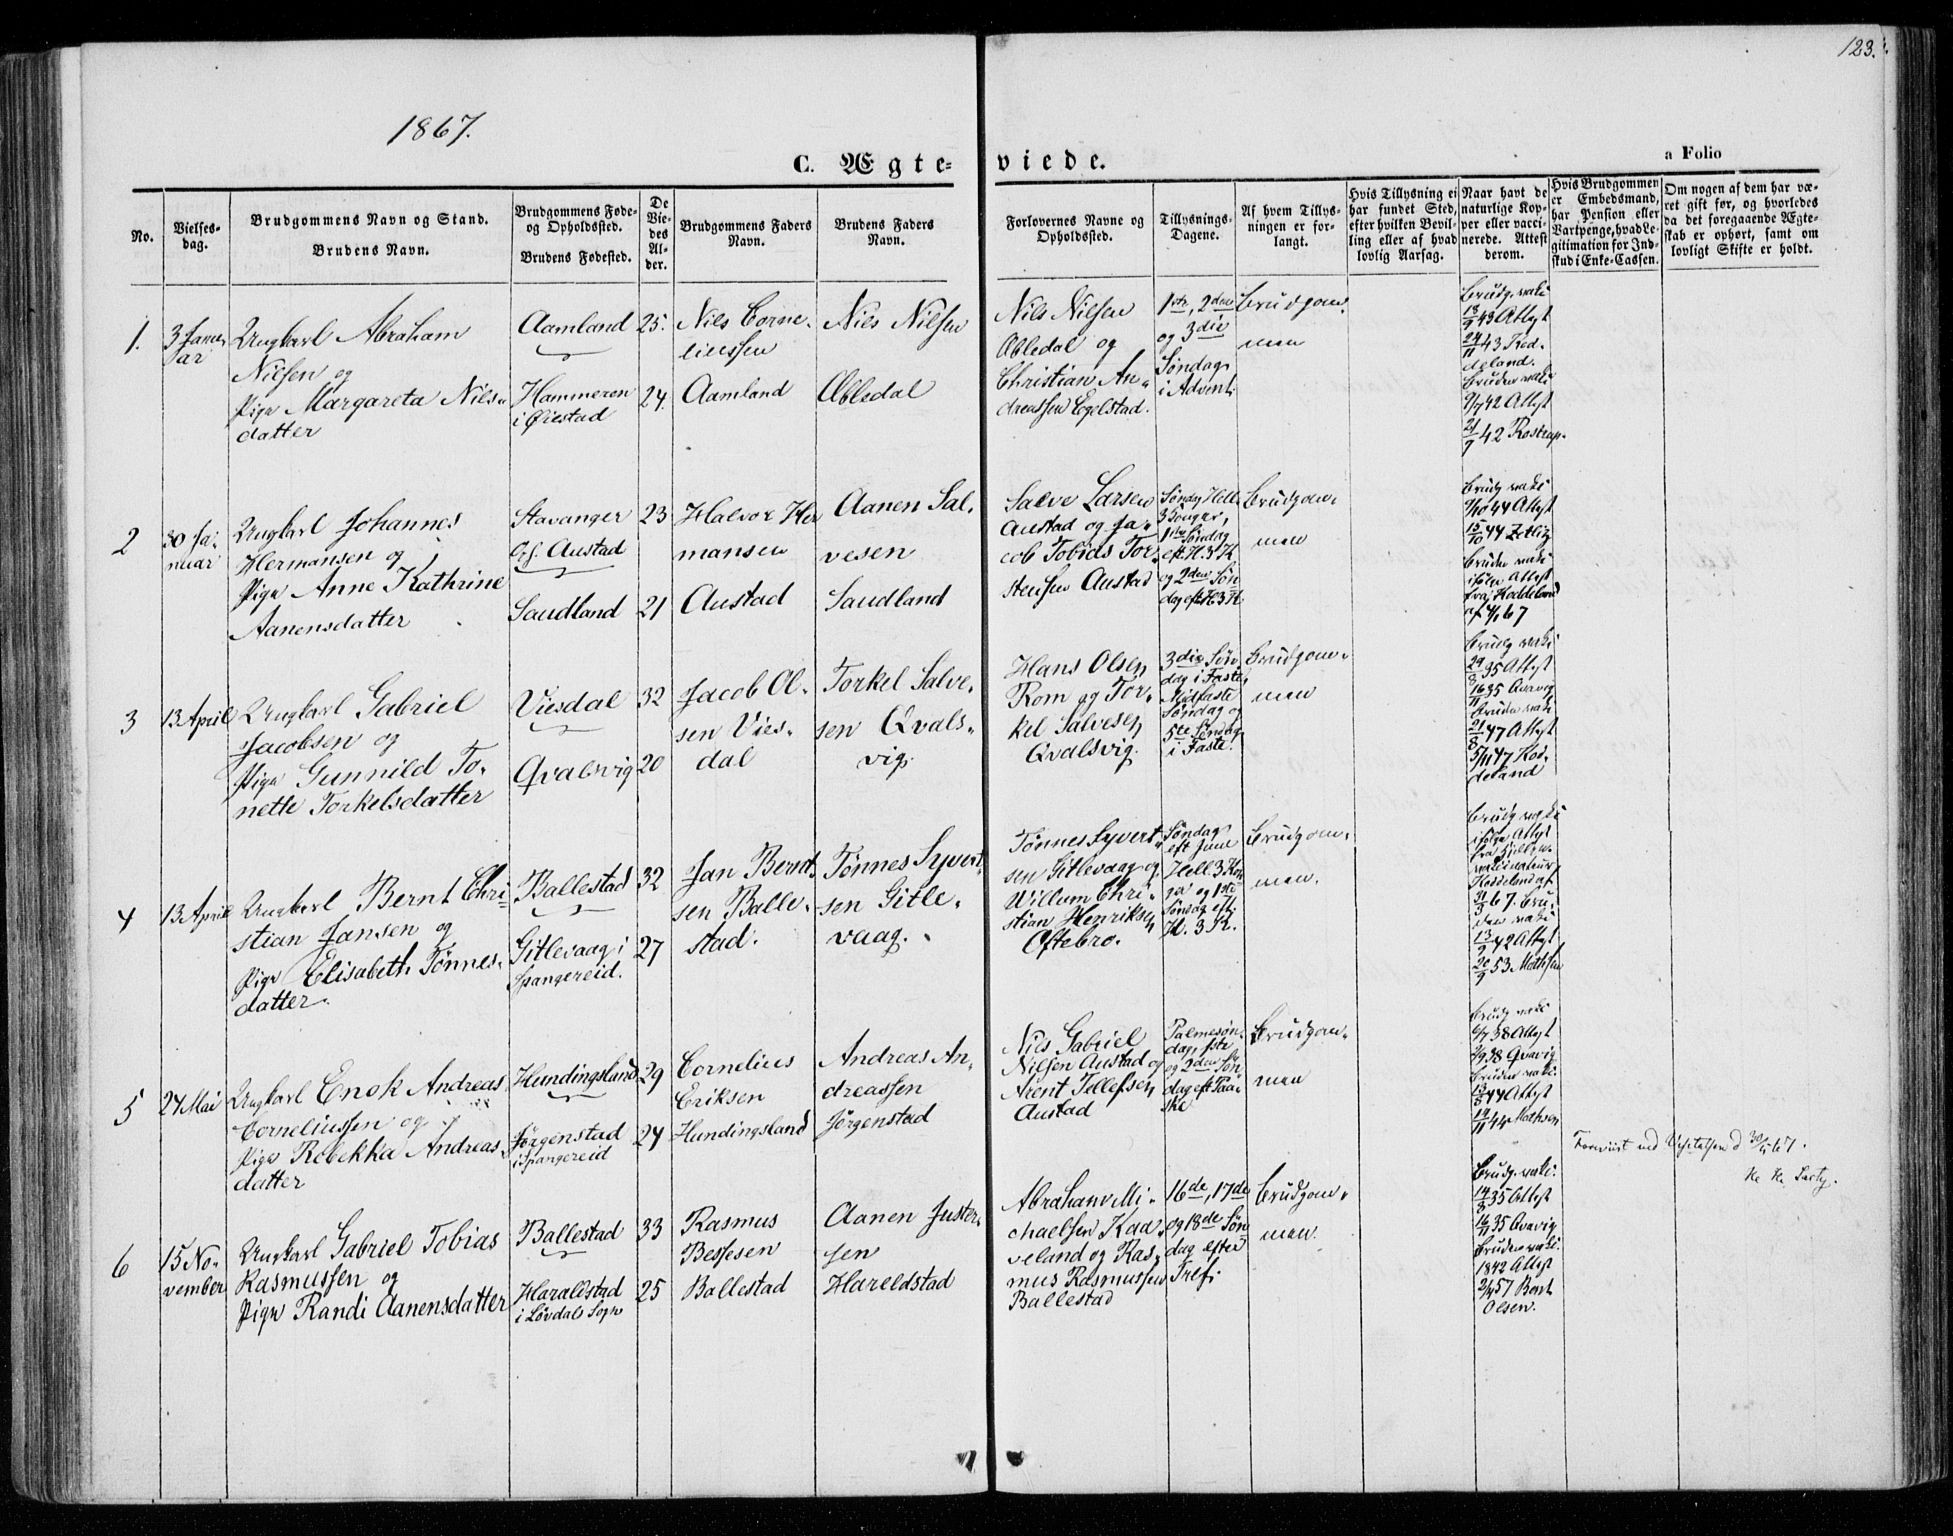 123.
1867.
C. Ægte=
viede.
a Folio
No.
Vielses-
dag.
Brudgommens Navn og Stand.
Brudens Navn.
Brudgommens Føde-
og Opholdssted.
Brudens Fødested.
De
Vie-
des
Al-
der.
Brudgommens Faders
Navn.
Brudens Faders
Navn.
Forlovernes Navne og
Opholdssted.
Tillysnings-
Dagene.
Af hvem Tillys-
ningen er for-
langt.
Hvis Tillysning ei
har fundet Sted,
efter hvilken Bevil-
ling eller af hvad
lovlig Aarsag.
Naar havt de
naturlige Kop-
per eller vacci-
nerede. Attest
derom.
Hvis Brudgommen
er Embedsmand,
har Pension eller
Vartpenge, hvad Le-
gitimation for Ind-
skud i Enke-Cassen.
Om nogen af dem har væ-
ret gift før, og hvorledes
da det foregaaende Ægte-
skab er ophørt, samt om
lovligt Skifte er holdt.
1.
3 Janu-
ar
Ungkarl Abraham
Nilsen og
Pige Margareta Nils-
datter
Aamland
Hammeren
i Øiestad
25.
24.
Nils Corne-
liussen
Aamland
Niels Nilsen
Abledal
Nils Nilsen
Abledal og
Christian An-
dreassen Egelstad.
1ste, 2den
og 3die
Søndag
i Advent
Brudgom-
men
Brudg. vakc
13/9 43 Attest
24/11 43 Kod-
deland.
Bruden vakc
9/7 42 Attest
21/9 42 Rostrup.
2
30 Ja-
nuar
Ungkarl Johannes
Hermansen og
Pige Anne Kathrine
Aanensdatter
Stavanger
Austad
Saudland
23
21
Halvor Her
mansen
Austad
Aanen Sal-
vesen
Saudland
Salve Larsen
Austad og Ja-
cob Tobias Tor-
stensen Austad
Søndag Hell.
3 Konger,
1ste Søndag
eft. H. 3 K.
og 2den Søn
dag eft H 3 K.
Brudgom-
men
Brudg vakc
9/10 44 Attest
15/10 44 Zetlitz
Bruden vakc
ifølge Attest
fra Koddeland
3
13 April
Ungkarl Gabriel
Jacobsen og
Pige Gunnild To-
nette Torkelsdatter
Viesdal
Qvalsvig
32
20
Jacob Ol-
sen Vies-
dal
Torkel Salve-
sen Qvals-
vig.
Hans Olsen
Rom og Tor-
kel Salvesen
Qvalsvig.
3die Søn
dag i Faste,
Midfaste
Søndag og
5te Søndag
i Faste.
Brudgom-
men
Brudg vakc
29/8 35 Attest
16/11 35 Qvavig
Bruden vakc
21/8 47 Attest
5/11 47 Kod-
deland
4
13 April
Ungkarl Bernt Chri-
stian Jansen og
Pige Elisabeth Tønnes-
datter.
Ballestad
Gitlevaag i
Spangereid.
32
27
Jan Bernt-
sen Balle-
stad.
Tønnes Syvert-
sen Gitle-
vaag.
Tønnes Syvert-
sen Gitlevaag og
Willum Chri-
stian Henriksen
Oftebro.
Søndag
eft Juul
Hell. 3 Kon
ger og 1ste
Søndag eft.
H. 3 K.
Brudgom-
men.
Brudg vakc
ifølge Attest
fra
vakcinateur
Koddeland af
31/3 67. Bru-
den vakc
13/9 42 Attest
20/9 53 Mathsen
5
27 Mai
Ungkarl Enok Andreas
Corneliussen og
Pige Rebekka Andreas-
datter
Hundingsland
Jørgenstad
i Spangereid
29
24
Cornelius
Eriksen
Hundingsland
Andreas An-
dreassen
Jørgenstad
Nils Gabriel
Nilsen Austad og
Arent Tellefsen
Austad
Palmesøn-
dag, 1ste
og 2den Søn
dag eft Paa-
ske
Brudgom-
men
Brudg vakc
6/7 38 Attest
2/9 38 Qvavig
Bruden vakc.
13/8 44 Attest
12/11 44 Mathsen
Foreviist ved Visitatsen d 30/5 67.
6
15 No-
vember
Ungkarl Gabriel Tobias
Rasmussen og
Pige Randi Aanensdatter
Ballestad
Haraldstad
i Løvdals Sogn
33
25
Rasmus
Bessesen
Ballestad
Aanen Juster-
sen
Hareldstad
Abraham Mi-
chaelsen Kaa-
veland og Ras-
mus Rasmussen
Ballestad
16de, 17de
og 18de Søn
dag efter
Tref.
Brudgom-
men.
Brudg. vakc.
14/8 35 Attest
16/11 35 Qvavig
Bruden vakc.
1842 Attest
2/4 57 Bent
Olsen.